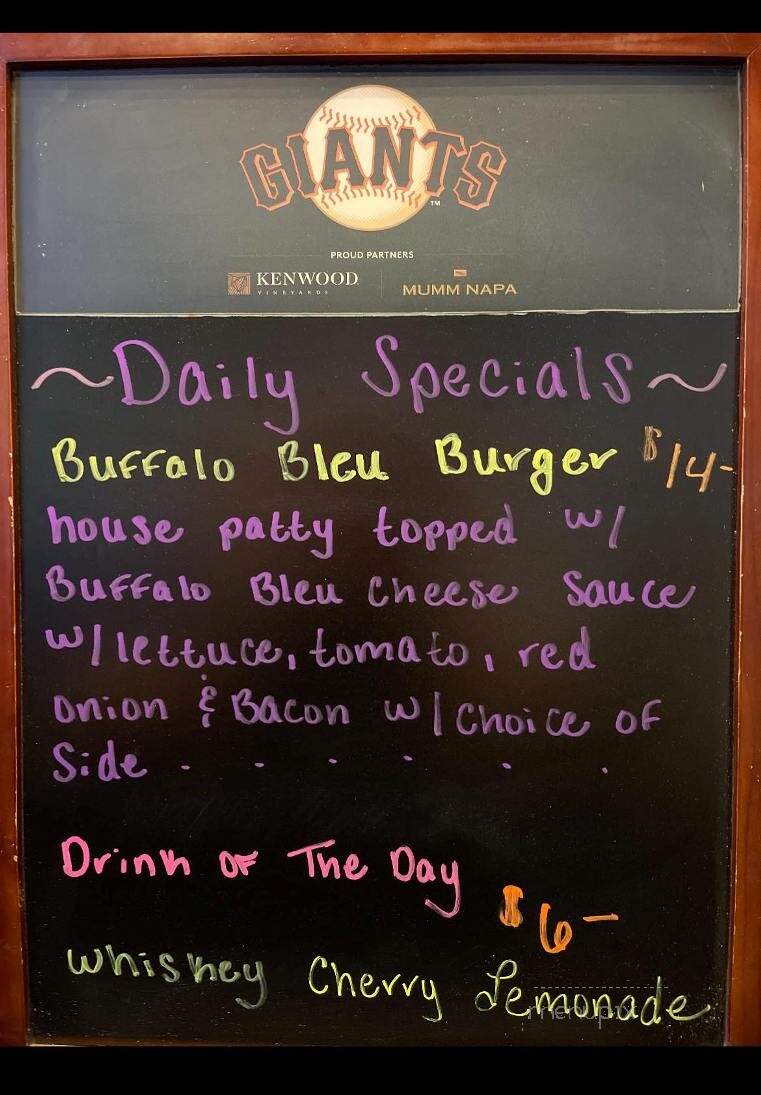 GIANTS
TM
PROUD PARTNERS
KENWOOD
VINEYARDS
MUMM NAPA
~Daily Specials~
Buffalo Bleu Burger $14-
house patty topped w/
Buffalo Bleu Cheese Sauce
w/lettuce, tomato, red
onion & Bacon w/choice of
Side . . . . . .
Drink of The Day
$6-
Whiskey Cherry Lemonade
menupix